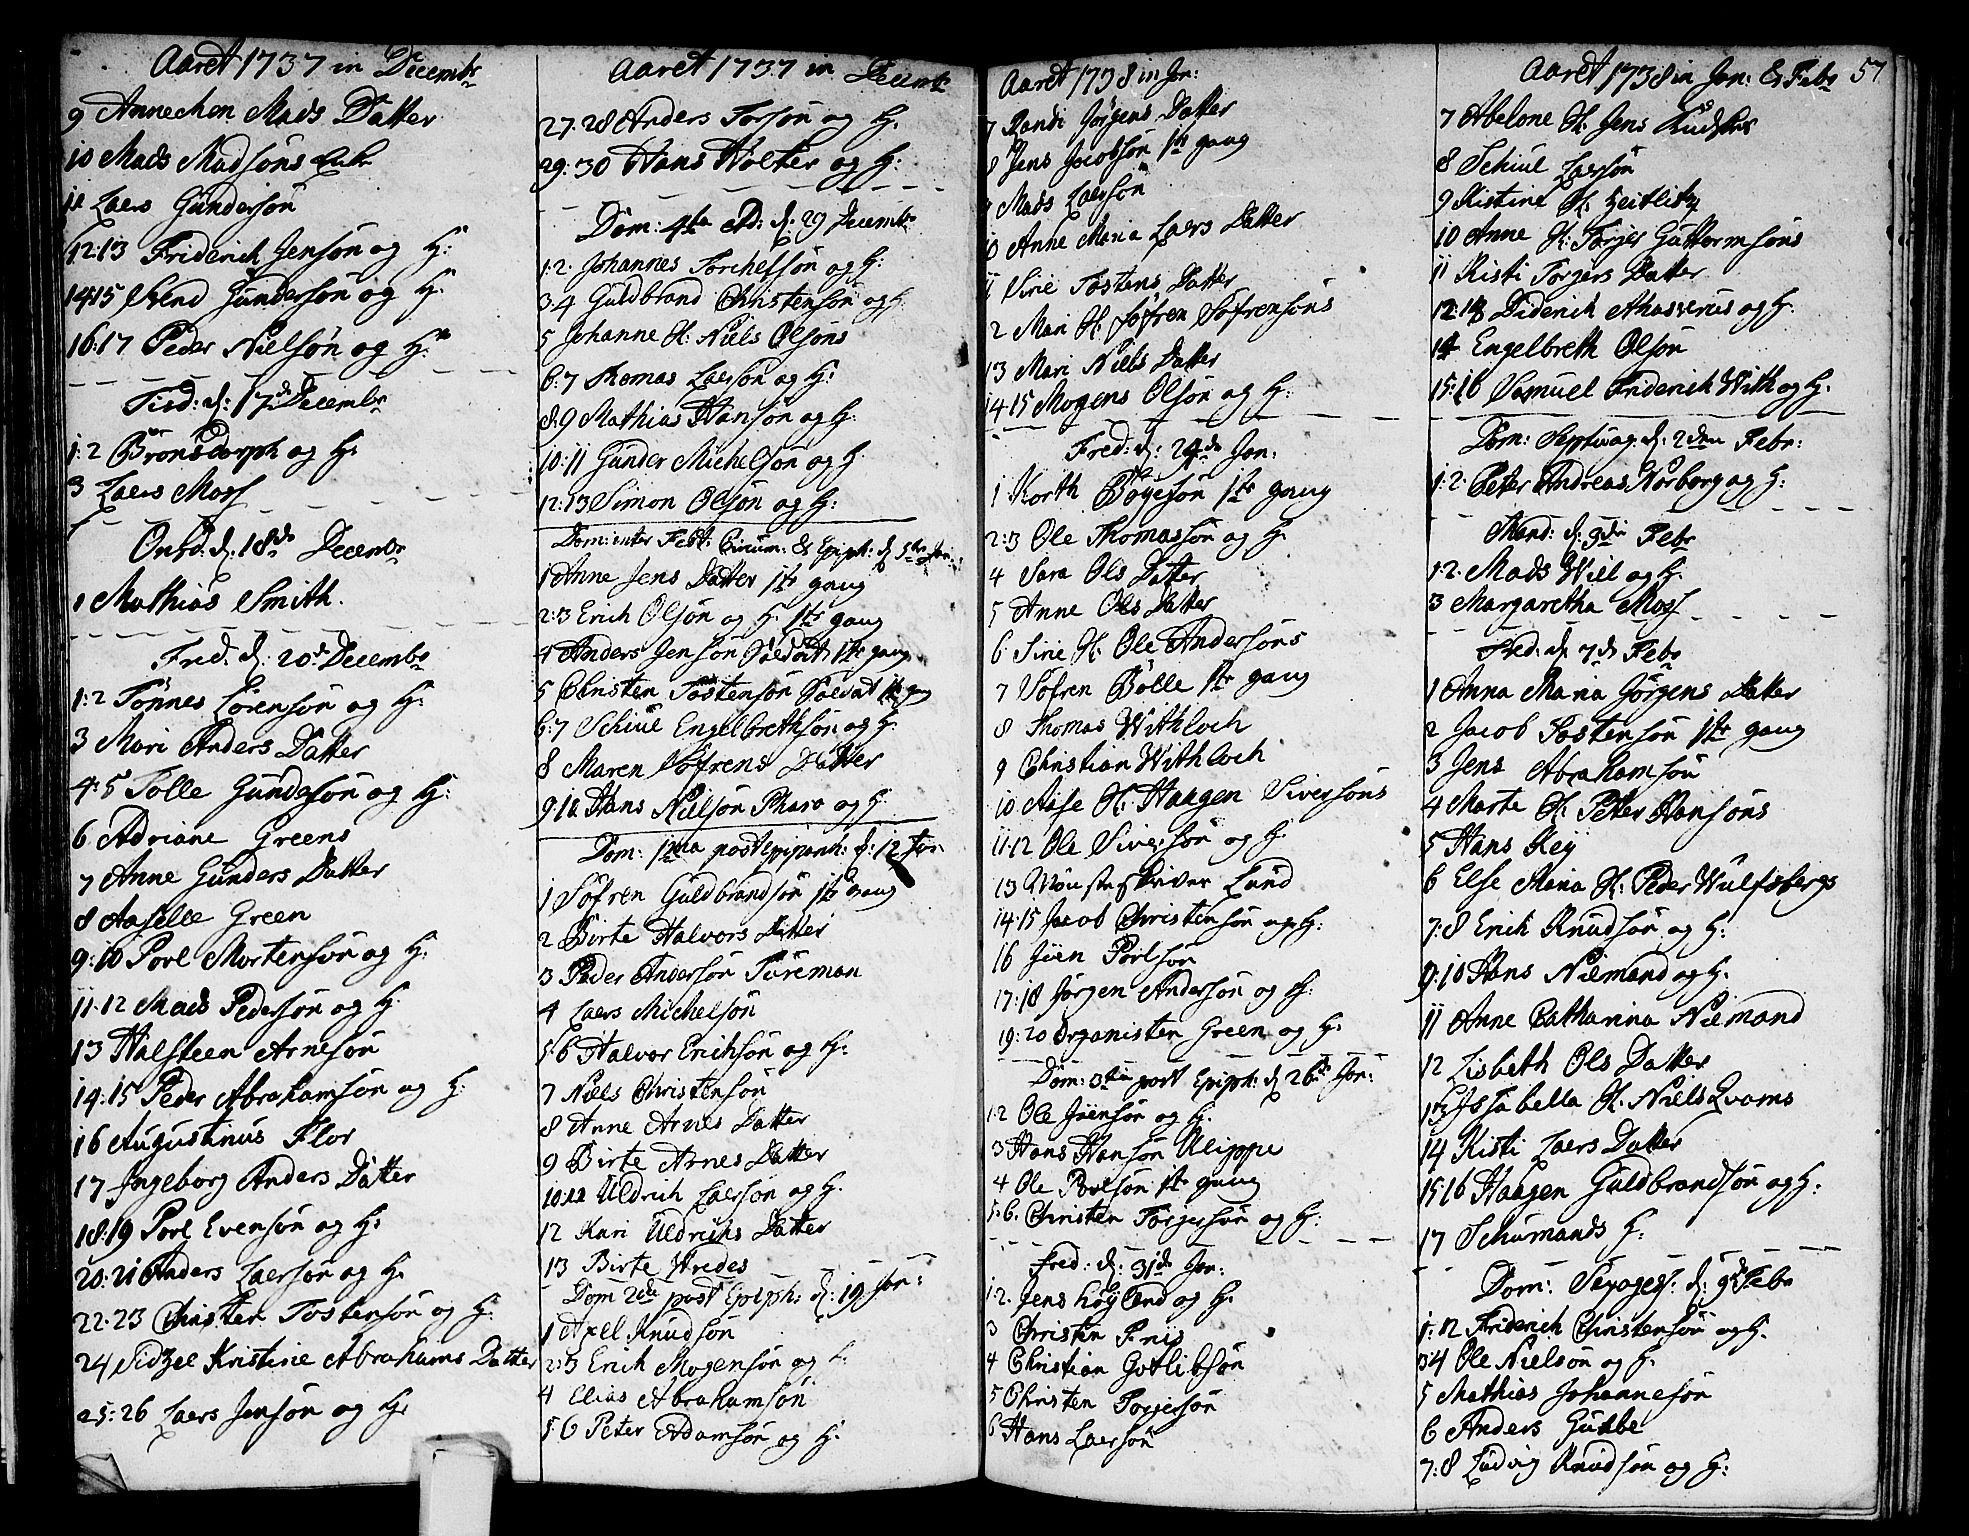 Aaret 1737 in Decembr
9 Annechen Mads Datter
10 Mads Madsøns Enke
11 Laers Gundersøn
12:13 Friderich Jensøn og H:
14:15 Svend Gundersøn og H:
16:17 Peder Nielsøn og H:
Tisd: d: 17de Decembr
1:2 Brønsdorph og H:
3 Laers Moss
Onsd: d: 18de Decembr
1 Mathias Smith.
Fred: d: 20de Decembr
1:2 Tønnes Lorensøn og H:
3 Mari Anders Datter
4:5 Tolle Gundersøn og H:
6 Adriane Greens
7 Anne Gunders Datter
8 Aaselle Green
9:10 Povl Mortensøn og H:
11:12 Mads Pedersøn og H:
13 Halsteen Arnesøn
14:15 Peder Abrahamsøn og H:
16 Augustinus Flor
17 Ingeborg Anders Datter
18:19 Povl Evensøn og H:
20:21 Anders Laersøn og H:
22:23 Christen Tostensøn og H:
24 Sidzel Kristine Abrahams Datter
25:26 Laers Jensøn og H:
Aaret 1737 in Decembr
27:28 Anders Torsøn og H:
29:30 Hans Wolter og H:
Dom: 4ta Ad: d: 29 Decembr
1:2 Johannes Torchelsøn og H:
3:4 Guldbrand Christensøn og H:
5 Johanne H: Niels Olsøns
6:7 Thomas Laersøn og H:
8:9 Mathias Hansøn og H:
10:11 Gunder Michelsøn og H:
12:13 Simon Olsøn og H:
Dom: inter Fest: Circum: & Epiph: d: 5te Jan:
1 Anne Jens Datter 1te gang
2:3 Erich Olsøn og H: 1te gang
4 Anders Jensøn Soldat 1te gang
5 Christen Tostensøn Soldat 1te gang
6:7 Schiul Engelbrethsøn og H:
8 Maren Sofrens Datter
9:10 Hans Nielsøn Pharo og H:
Dom: 1ma post Epiphanh: d: 12 Jan:
1 Sofren Guldbrandsøn 1te gang
2 Birte Halvors Datter
3 Peder Andersøn Fureman
4 Laers Michelsøn
5:6 Halvor Erichsøn og H:
7 Niels Christensøn
8 Anne Arnes Datter
9 Birte Arnes Datter
10:11 Uldrich Laersøn og H:
12 Kari Uldrichs Datter
13 Birte Wredes
Dom 2de post Epiph: d: 19 Jan:
1 Axel Knudsøn
2:3 Erich Mogensøn og H:
4 Elias Abrahamsøn
5:6 Peter Adamsøn og H:
Aaret 1738 in Jan:
7 Randi Jørgens Datter
8 Jens Jacobsøn 1te gang
9 Mads Laersøn
10 Anne Maria Laers Datter
11 Sirie Tostens Datter
12 Mari H: Sofren Sofrensøns
13 Mari Niels Datter
14:15 Mogens Olsøn og H:
Fred: d: 24de Jan:
1 Korth Bøyesøn 1te gang
2:3 Ole Thomassøn og H:
4 Sara Ols Datter
5 Anne Ols Datter
6 Sirie H: Ole Andersøns
7 Sofren Bølle 1te gang
8 Thomas Withloch
9 Christian Withloch
10 Aase H: Haagen Siversøns
11:12 Ole Siversøn og H:
13 Mønsterskriver Lund
14:15 Jacob Christensøn og H:
16 Juen Povlsøn
17:18 Jørgen Andersøn og H:
19:20 Organisten Green og H:
Dom: 3tia post Epiph: d: 26de Jan:
1:2 Ole Juensøn og H:
3 Hans Hansøn Klippe
4 Ole Povlsøn 1te gang
5:6 Christen Torgersøn og H:
Fred: d: 31de Jan:
1:2 Jens Høyland og H:
3 Christen Friis
4 Christian Gotlibsøn
5 Christen Torgersøn
6 Hans Laersøn
Aaret 1738 in Jan: & Febr 57
7 Abelone H: Jens Kudskes
8 Schiul Laersøn
9 Kistine H: Zeitlitz
10 Anne H: Torger Guttormsøns
11 Kisti Torgers Datter
12:13 Diderich Ahasverus og H:
14 Engelbreth Olsøn
15:16 Samuel Friderich With og H:
Dom: Septuag: d: 2den Febr:
1:2 Peter Andreas Norborg og H:
Mand: d: 3die Febr
1:2 Mads Wiel og H:
3 Margaretha Moss
Fred: d: 7de Febr
1 Anna Maria Jørgens Datter
2 Jacob Tostensøn 1te gang
3 Jens Abrahamsøn
4 Marte H: Peter Hansøns
5 Hans Key
6 Else Maria H: Peder Wulfsbergs
7:8 Erich Knudsøn og H:
9:10 Hans Niemand og H:
11 Anne Catharina Niemand
12 Lisbeth Ols Datter
13 Issabella H: Niels Qvams
14 Kisti Laers Datter
15:16 Haagen Guldbrandsøn og H:
17 Schumands H:
Dom: Sexages: d: 9de Febr
1:2 Friderich Christensøn og H:
3:4 Ole Nielsøn og H:
5 Mathias Johannesøn
6 Anders Gubbe
7:8 Ludvig Knudsøn og H: